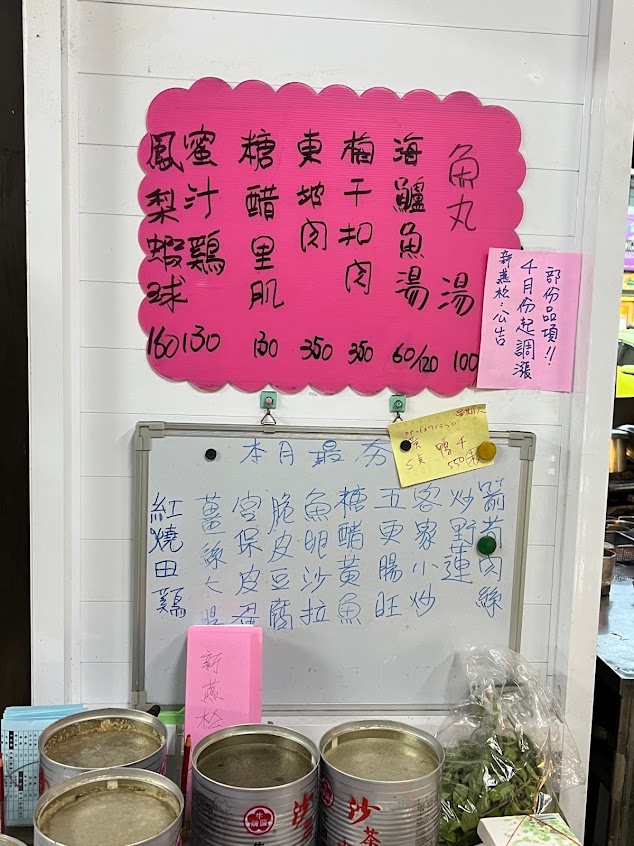 魚丸湯 100
海鱸魚湯 60/120
梅干扣肉 350
東坡肉 350
糖醋里肌 130
蜜汁鷄 130
鳳梨蝦球 160
部份品項!!
4月份起調漲
新燕松:公告
本月最夯
箭筍肉絲
炒野蓮
客家小炒
五更腸旺
糖醋黃魚
魚卵沙拉
脆皮豆腐
宮保皮蛋
薑絲大腸
紅燒田鷄
鴨
550
新燕松
牛頭牌
沙
沙茶